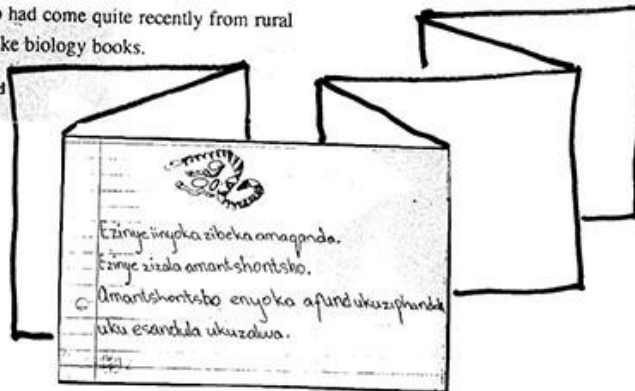 had come quite recently from rural
ke biology books.
Ezinye iinyoka zibeka amaqanda.
Ezinye zizala amantshontsho.
Amantshontsho enyoka afund ukuziphandela
uku esandula ukuzalwa.